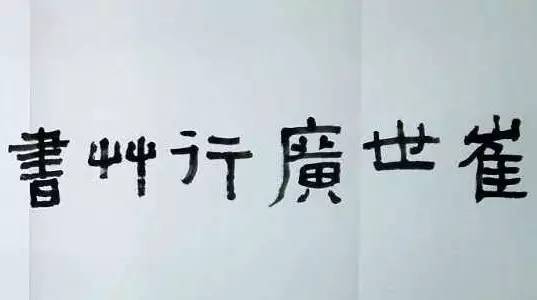 崔世廣行艸書